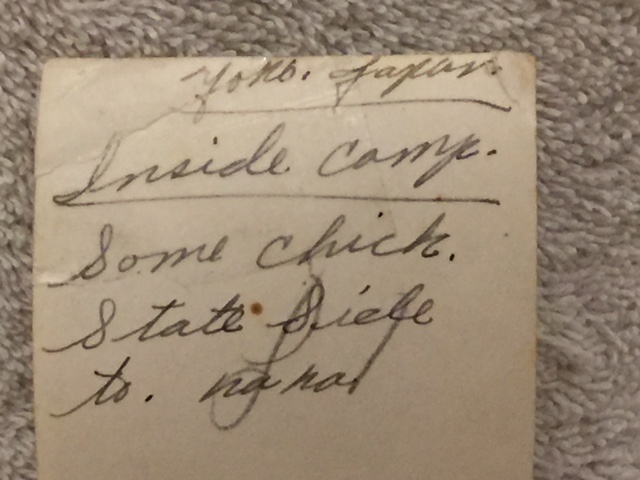 Yoko. Japan.
Inside Camp.
Some chick.
State Side
to. na na